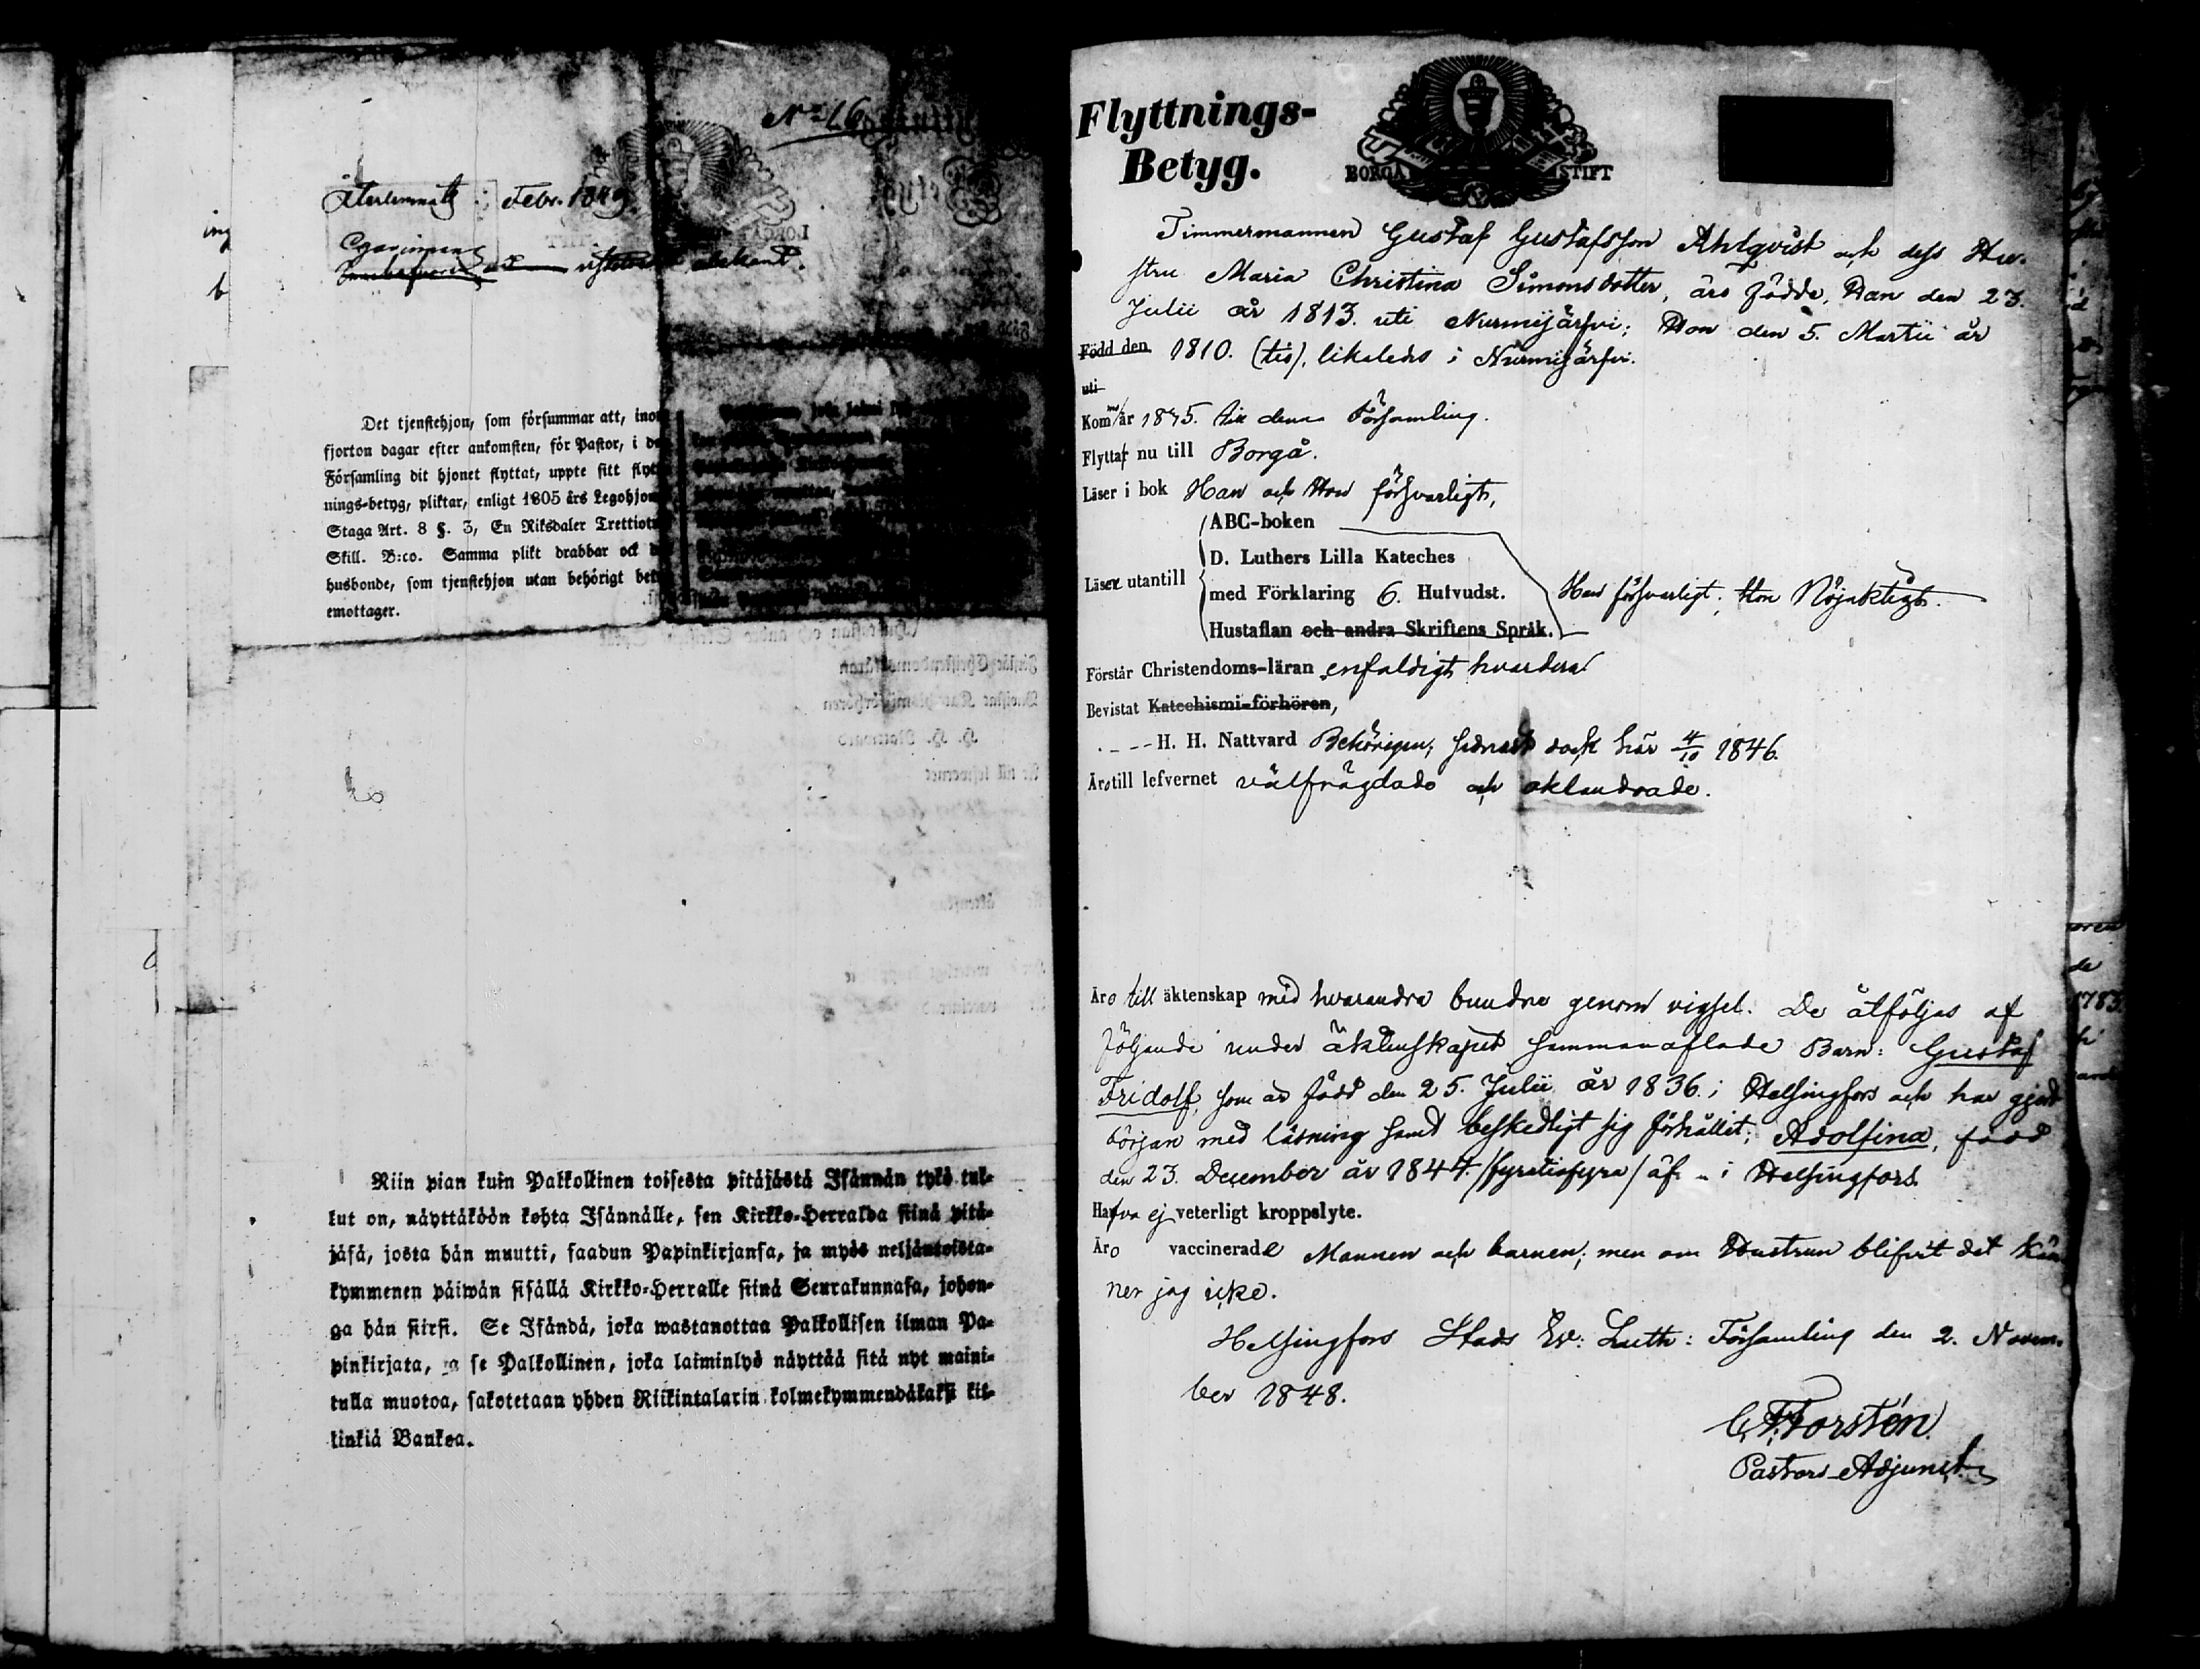 No 16
Febr. 1849
Det tjenstehjon, som försummar att, inom
fjorton dagar efter ankomsten, för Pastor, i
Församling dit hjonet flyttat, uppte sitt flytt
nings-betyg, pliktar, enligt 1805 års Legohjons
Staga Art. 8 §. 3, En Riksdaler Trettiotv
Skill. B:co. Samma plikt drabbar ock
husbonde, som tjenstehjon utan behörigt
emottager.
Niin pian kuin Palkollinen toisesta pitäjästä Isännän tykö tul-
lut on, näyttäköön kohta Isännälle, sen Kirkko-Herralda siinä pitä-
jäsä, josta hän muutti, saadun Papinkirjansa, ja myös neljäntoista-
kymmenen päiwän sisällä Kirkko-Herralle siinä Seurakunnasa, johon-
ga hän siirsi. Se Isändä, joka wastanottaa Palkollisen ilman Pa-
pinkirjata, ja se Palkollinen, joka laiminlyö näyttää sitä nyt maini-
tulla muotoa, sakotetaan yhden Riikintalarin kolmekymmendäkaksi kil-
linkiä Bankoa.
Flyttnings-
Betyg.
BORGÅ STIFT
Timmermannen Gustaf Gustafsson Ahlqvist och dess Hu-
stru Maria Christina Simonsdotter, äro födde, Han den 23.
Julii år 1813. uti Nurmijärfvi; Hon den 5. Martii år
Född den 1810. (tio), likaledes i Nurmijärfvi.
uti
Kom år 1835. till denna Församling.
Flytta nu till Borgå.
Läser i bok Han och Hon försvarligt,
ABC-boken
D. Luthers Lilla Kateches
Läser utantill med Förklaring 6. Hufvudst. Han försvarligt; Hon Nöjaktigt.
Hustaflan och andra Skriftens Språk.
Förstår Christendoms-läran enfaldigt hvardera
Bevistat Katechismi-förhören,
H. H. Nattvard Behörigen, sednast dock här 4/10 1846.
Äro till lefvernet välfrägdade och oklandrade.
Äro till äktenskap med hvarandra bundne genom vigsel. De åtföljas af
följande under äktenskapet sammanaflade Barn: Gustaf
Fridolf, som är född den 25. Julii år 1836. i Helsingfors och har gjort
början med läsning samt beskedligt sig förhållit; Adolfina, född
den 23. December år 1844. /fyratiofyra/ äf- i Helsingfors.
Hafva ej veterligt kroppslyte.
Äro vaccinerade Mannen och barnen; men om Hustrun blifvit det kän-
ner jag icke.
Helsingfors Stads Ev: Luth: Församling den 2. Novem-
ber 1848.
C. F. Forstén
Pastors-Adjunct